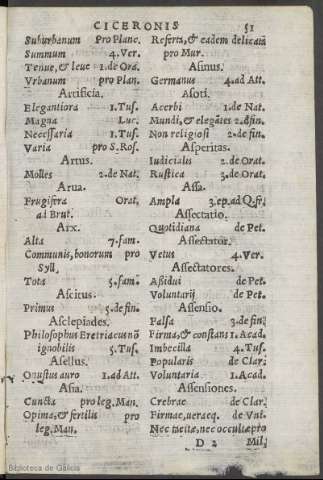 CICERONIS 51
Suburbanum Pro Planc.
Summum 4. Ver.
Tenue, & leue 1. de Ora.
Vrbanum pro Plan.
Artificia.
Elegantiora 1. Tus.
Magna Luc.
Necessaria 1. Tus.
Varia pro S. Ros.
Artus.
Molles 2. de Nat.
Arua.
Frugifera Orat.
ad Brut.
Arx.
Alta 7. fam.
Communis, bonorum pro
Syll.
Tota 5. fam.
Ascitus.
Primus 5. de fin.
Asclepiades.
Philosophus Eretriacus nō
ignobilis 5. Tus.
Asellus.
Onustus auro 1. ad Att.
Asia.
Cuncta pro leg. Man.
Opima, & fertilis pro
leg. Man.
Referta, & eadem delicata
pro Mur.
Asinus.
Germanus 4. ad Att.
Asoti.
Acerbi 1. de Nat.
Mundi, & elegātes 2. d fin.
Non religiosi 2. de fin.
Asperitas.
Iudicialis 2. de Orat.
Rustica 3. de Orat.
Assa.
Ampla 3. ep. ad Q. fr.
Assectatio.
Quotidiana de Pet.
Assectator.
Vetus 4. Ver.
Assectatores.
Assidui de Pet.
Voluntarij de Pet.
Assensio.
Falsa 3. de fin.
Firma, & constans 1. Acad.
Imbecilla 4. Tus.
Popularis de Clar.
Voluntaria 1. Acad.
Assensiones.
Crebrae de Clar.
Firmae, ueraeq. de Vnt.
Nec incitæ, nec occultæ pro
D 2 Mil.
Biblioteca de Galicia